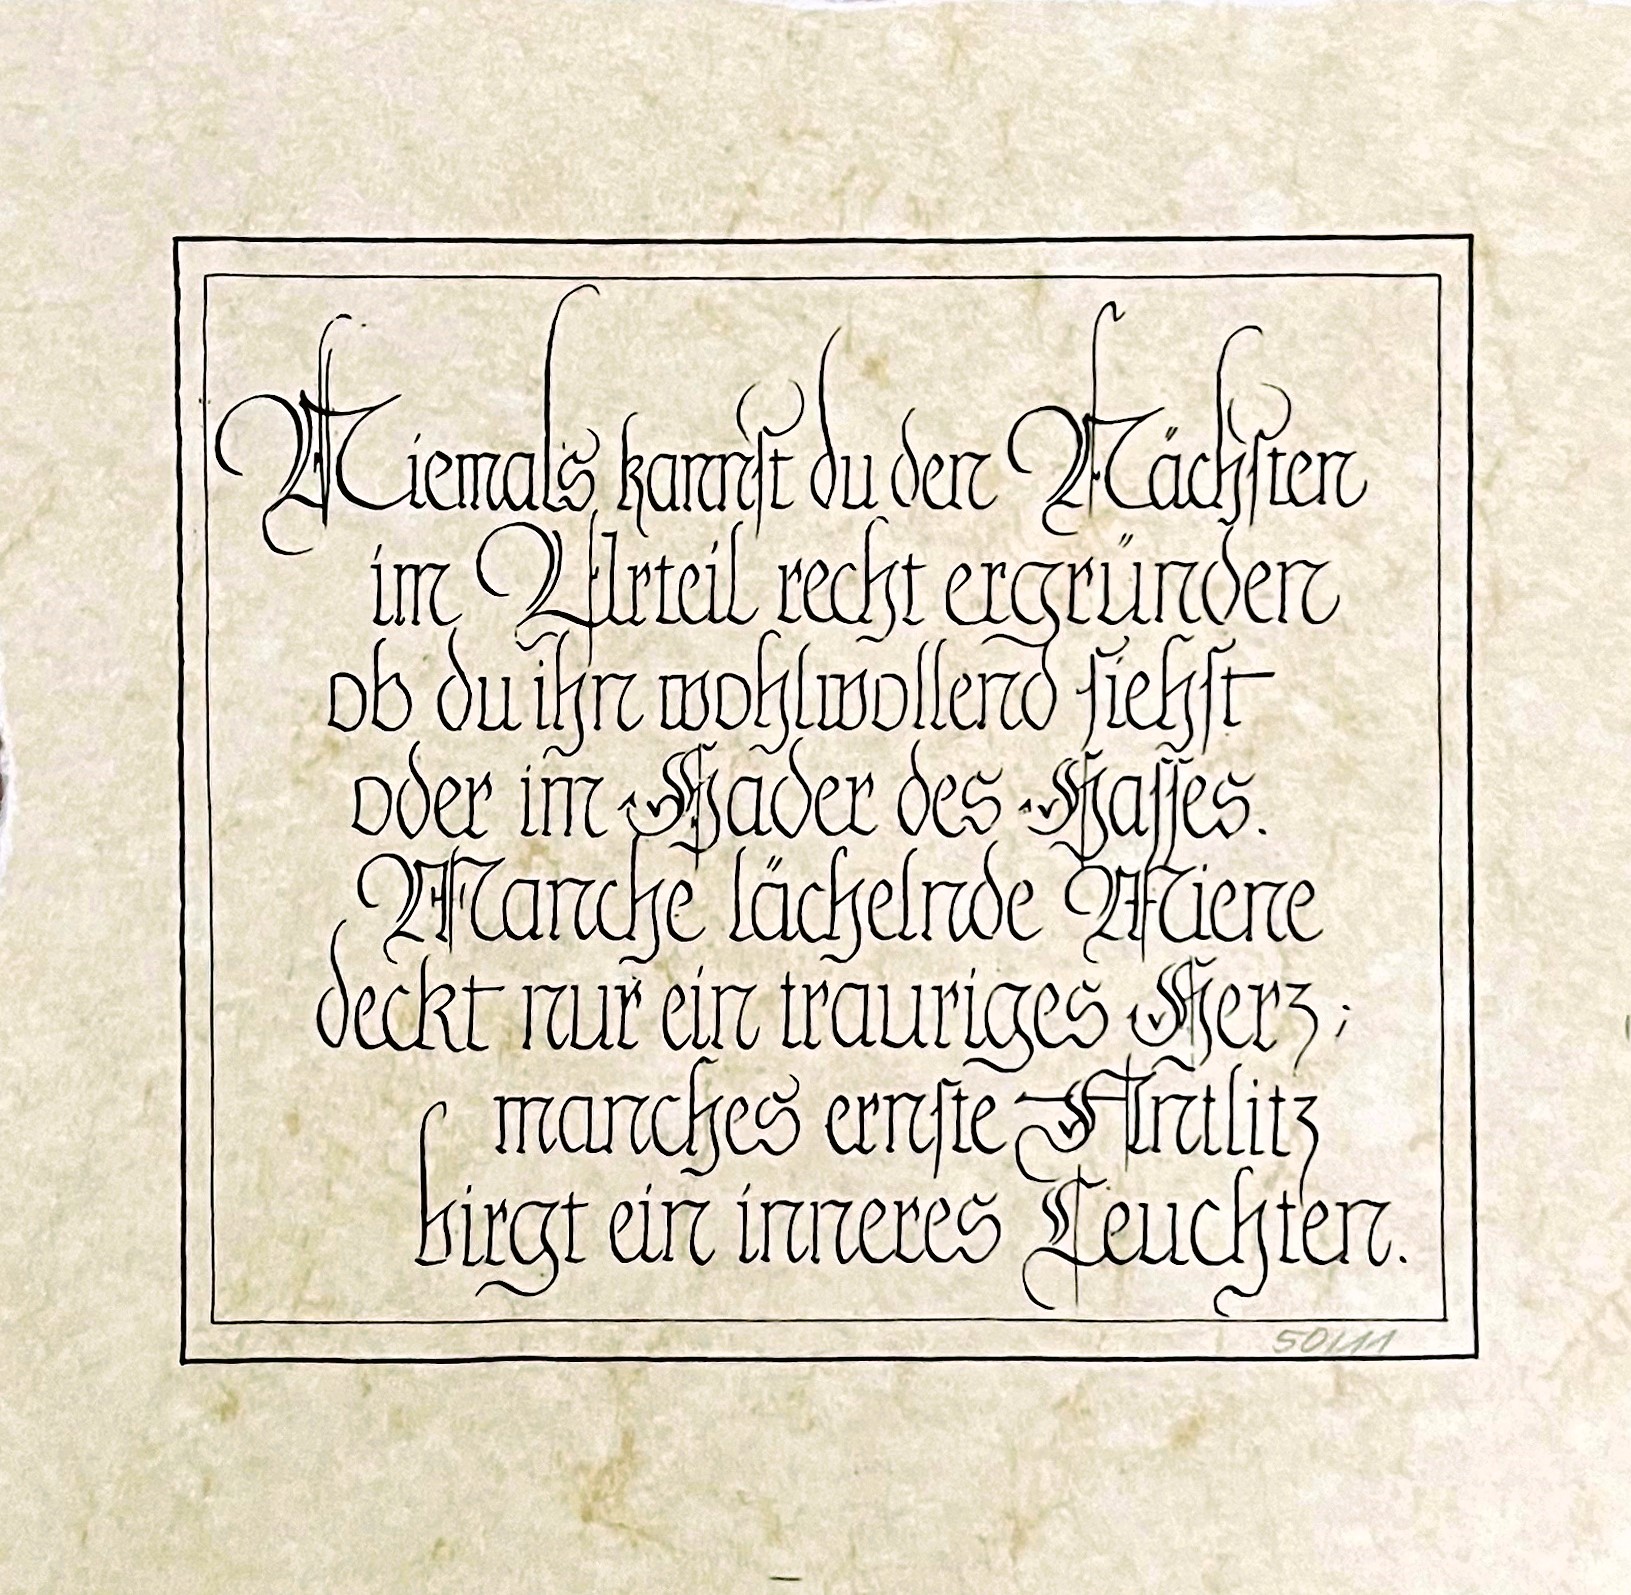 Niemals kannſt du den Nächſten
im Urteil recht ergründen
ob du ihn wohlwollend ſiehſt
oder im Hader des Haſſes.
Manche lächelnde Miene
deckt nur ein trauriges Herz;
manches ernſte Antlitz
birgt ein inneres Leuchten.